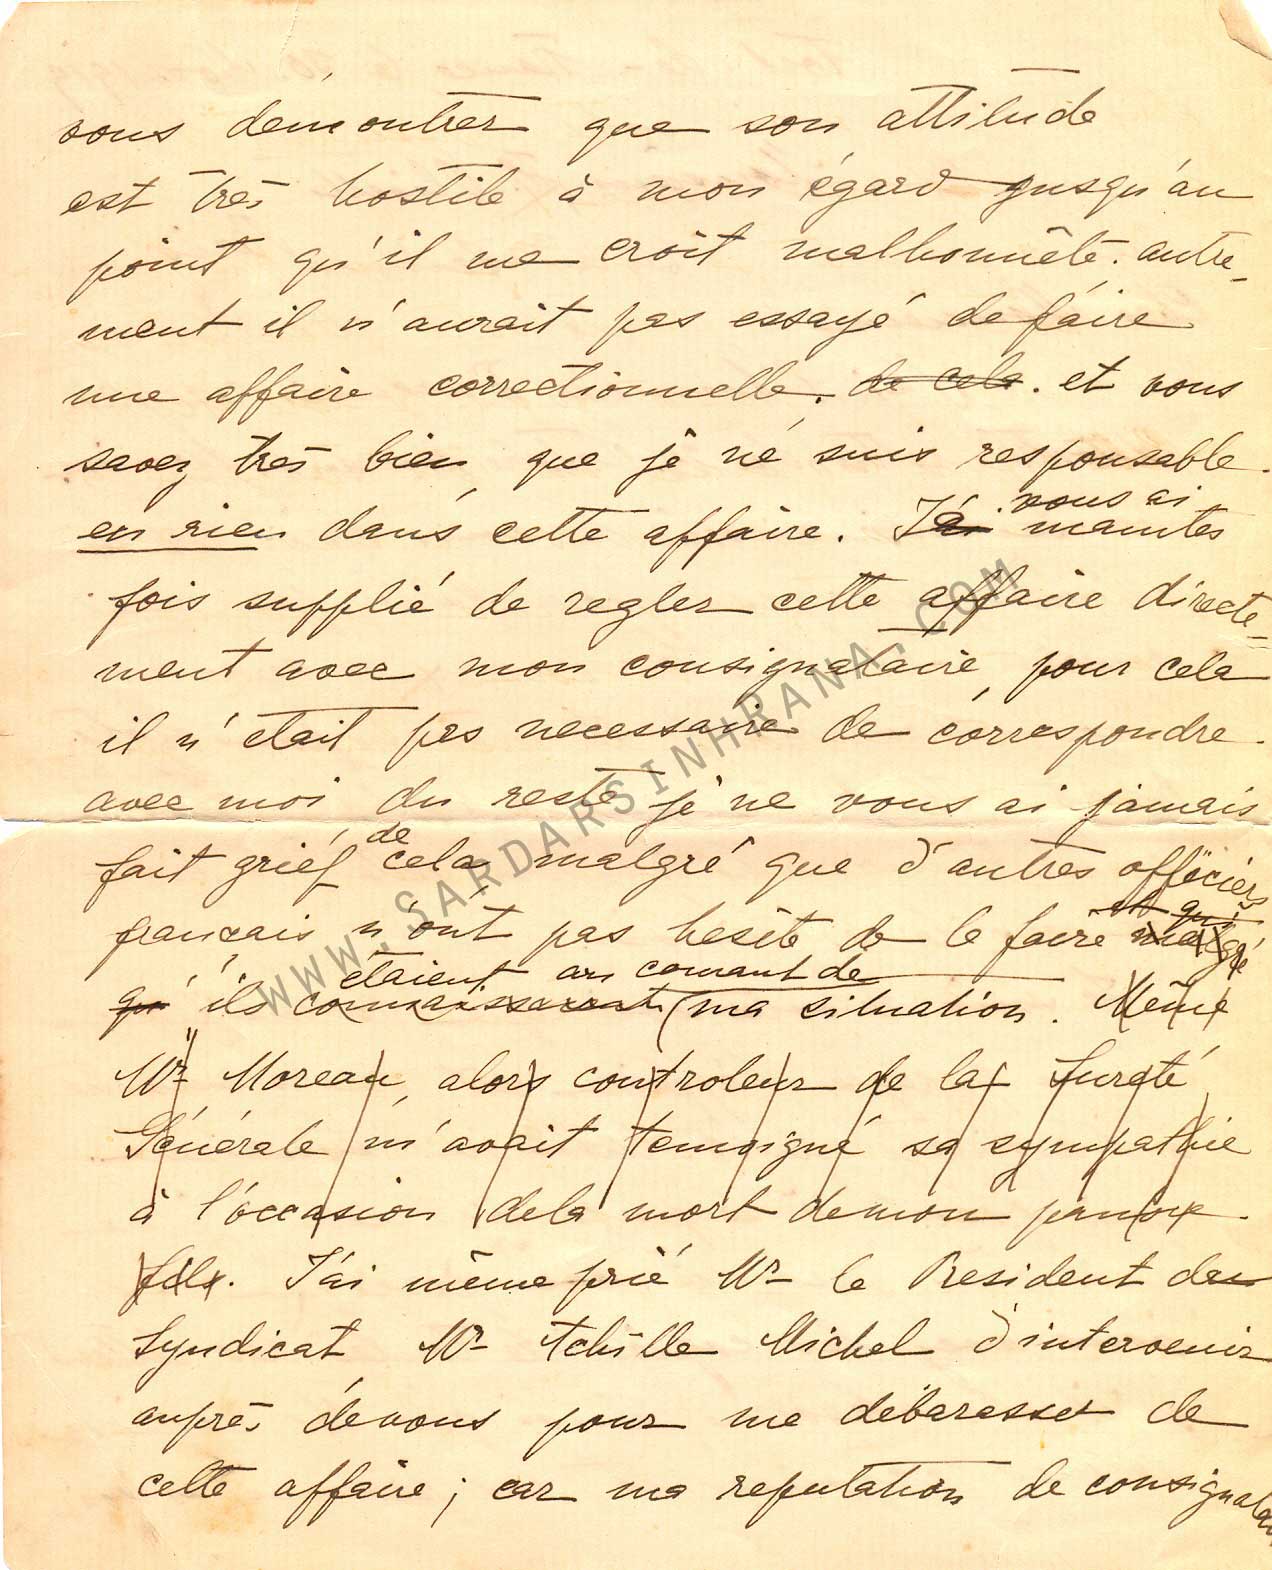 vous démontrer que son attitude
est très hostile à mon égard jusqu'au
point qu'il me croit malhonnête. autre-
ment il n'aurait pas essayé de faire
une affaire correctionnelle. de cela. et vous
savez très bien que je ne suis responsable.
en rien dans cette affaire. J'ai vous ai maintes
fois supplié de regler cette affaire directe-
ment avec mon consignataire, pour cela
il n'était pas necessaire de correspondre.
avec moi du reste je ne vous ai jamais
fait grief de cela, malgré que d'autres officiers
français n'ont pas hésité de le faire malgré et qui
qu'ils connaissaient étaient au courant de ma situation. Même
Mr Moreau, alors controleur de la Sureté
Générale m'avait temoigné sa sympathie
à l'occasion de la mort de mon pauvre.
fils. J'ai même prié Mr le President du
Syndicat Mr Achille Michel d'intervenir
auprès de vous pour me débarasser de
cette affaire; car ma reputation de consignatai
WWW.SARDARSINHRANA.COM